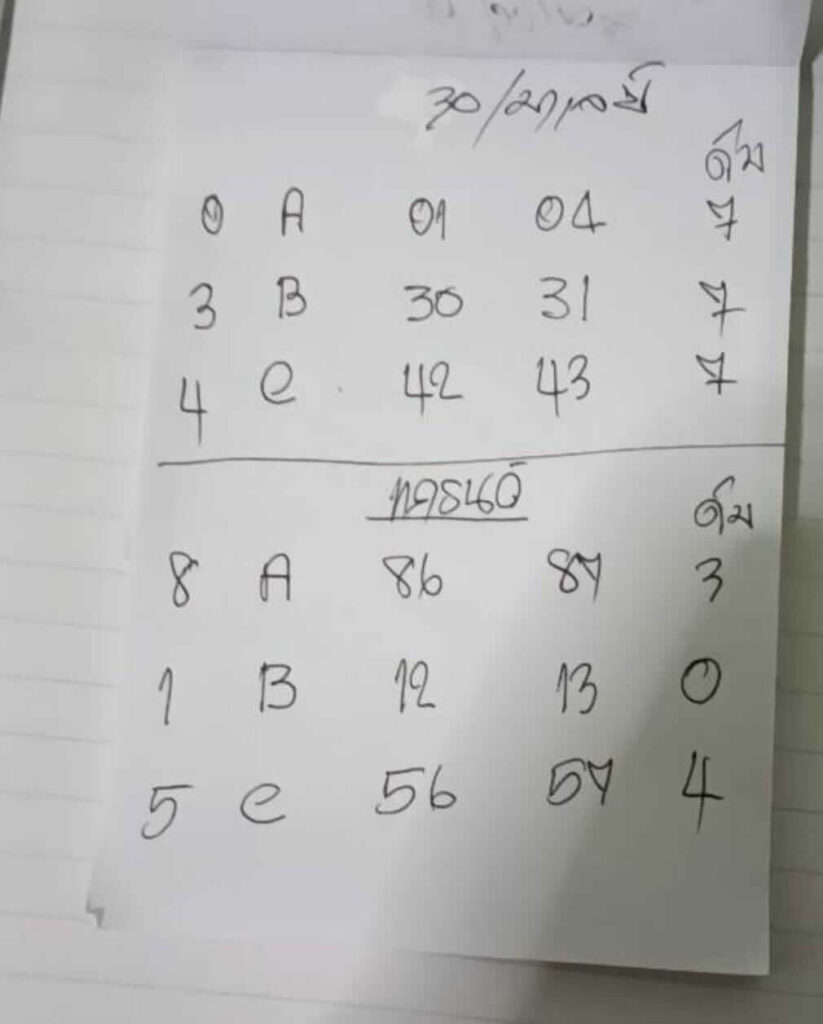 30/มาเลย์
ดับ
0 A 01 04 7
3 B 30 31 7
4 C 42 43 7
แกรนด์
ดับ
8 A 86 87 3
1 B 12 13 0
5 C 56 57 4